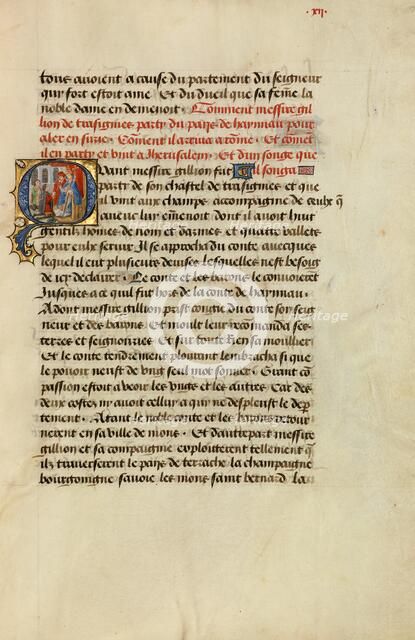 ·xii·
tous avoient a cause du partement du seigneur
qui fort estoit ame Et du dueil que sa feme la
noble dame en demenoit. Comment messire gil
lion de trasignies party du pays de haynnau pour
aler en surie Comment il arriva a rome. Et comet
il en party et vint a Jherusalem. Et dun songe que
Quant messire gillion fut il songa
party de son chastel de trasignies et que
il vint aux champs accompagnie de ceulx q̃
avecuc luy emenoit dont il avoit huit
gentilz homes de nom et darmes et quatre varletz
pour eulx servir Il se approcha du conte avecques
lequel il eut pluiseurs devises lesquelles nest besoing
de icy declairer. Le conte et les barons le convoierent
Jusques a ce quil fut hors de la conte de haynnau.
Adont messire gillion prist congie du conte son seig
neur et des barons Et moult leur recomanda ses
terres et seignouries Et sur toute rien sa moullier
Et le conte tendrement plourant lembracha si que
le povoir neust de ung seul mot sonner. Grant com
passion estoit a veoir les ungs et les autres Car des
deux costez ny avoit celluy a qui ne despleust le dep
tement. Atant le noble conte et les barons retour
nerent en sa ville de mons. Et dautrepart messire
gillion et sa compaignie exploitterent tellement q̃
ilz traverserent le pays de terrache la champaigne
bourgoingne savoie les mons saint bernard la
heritage